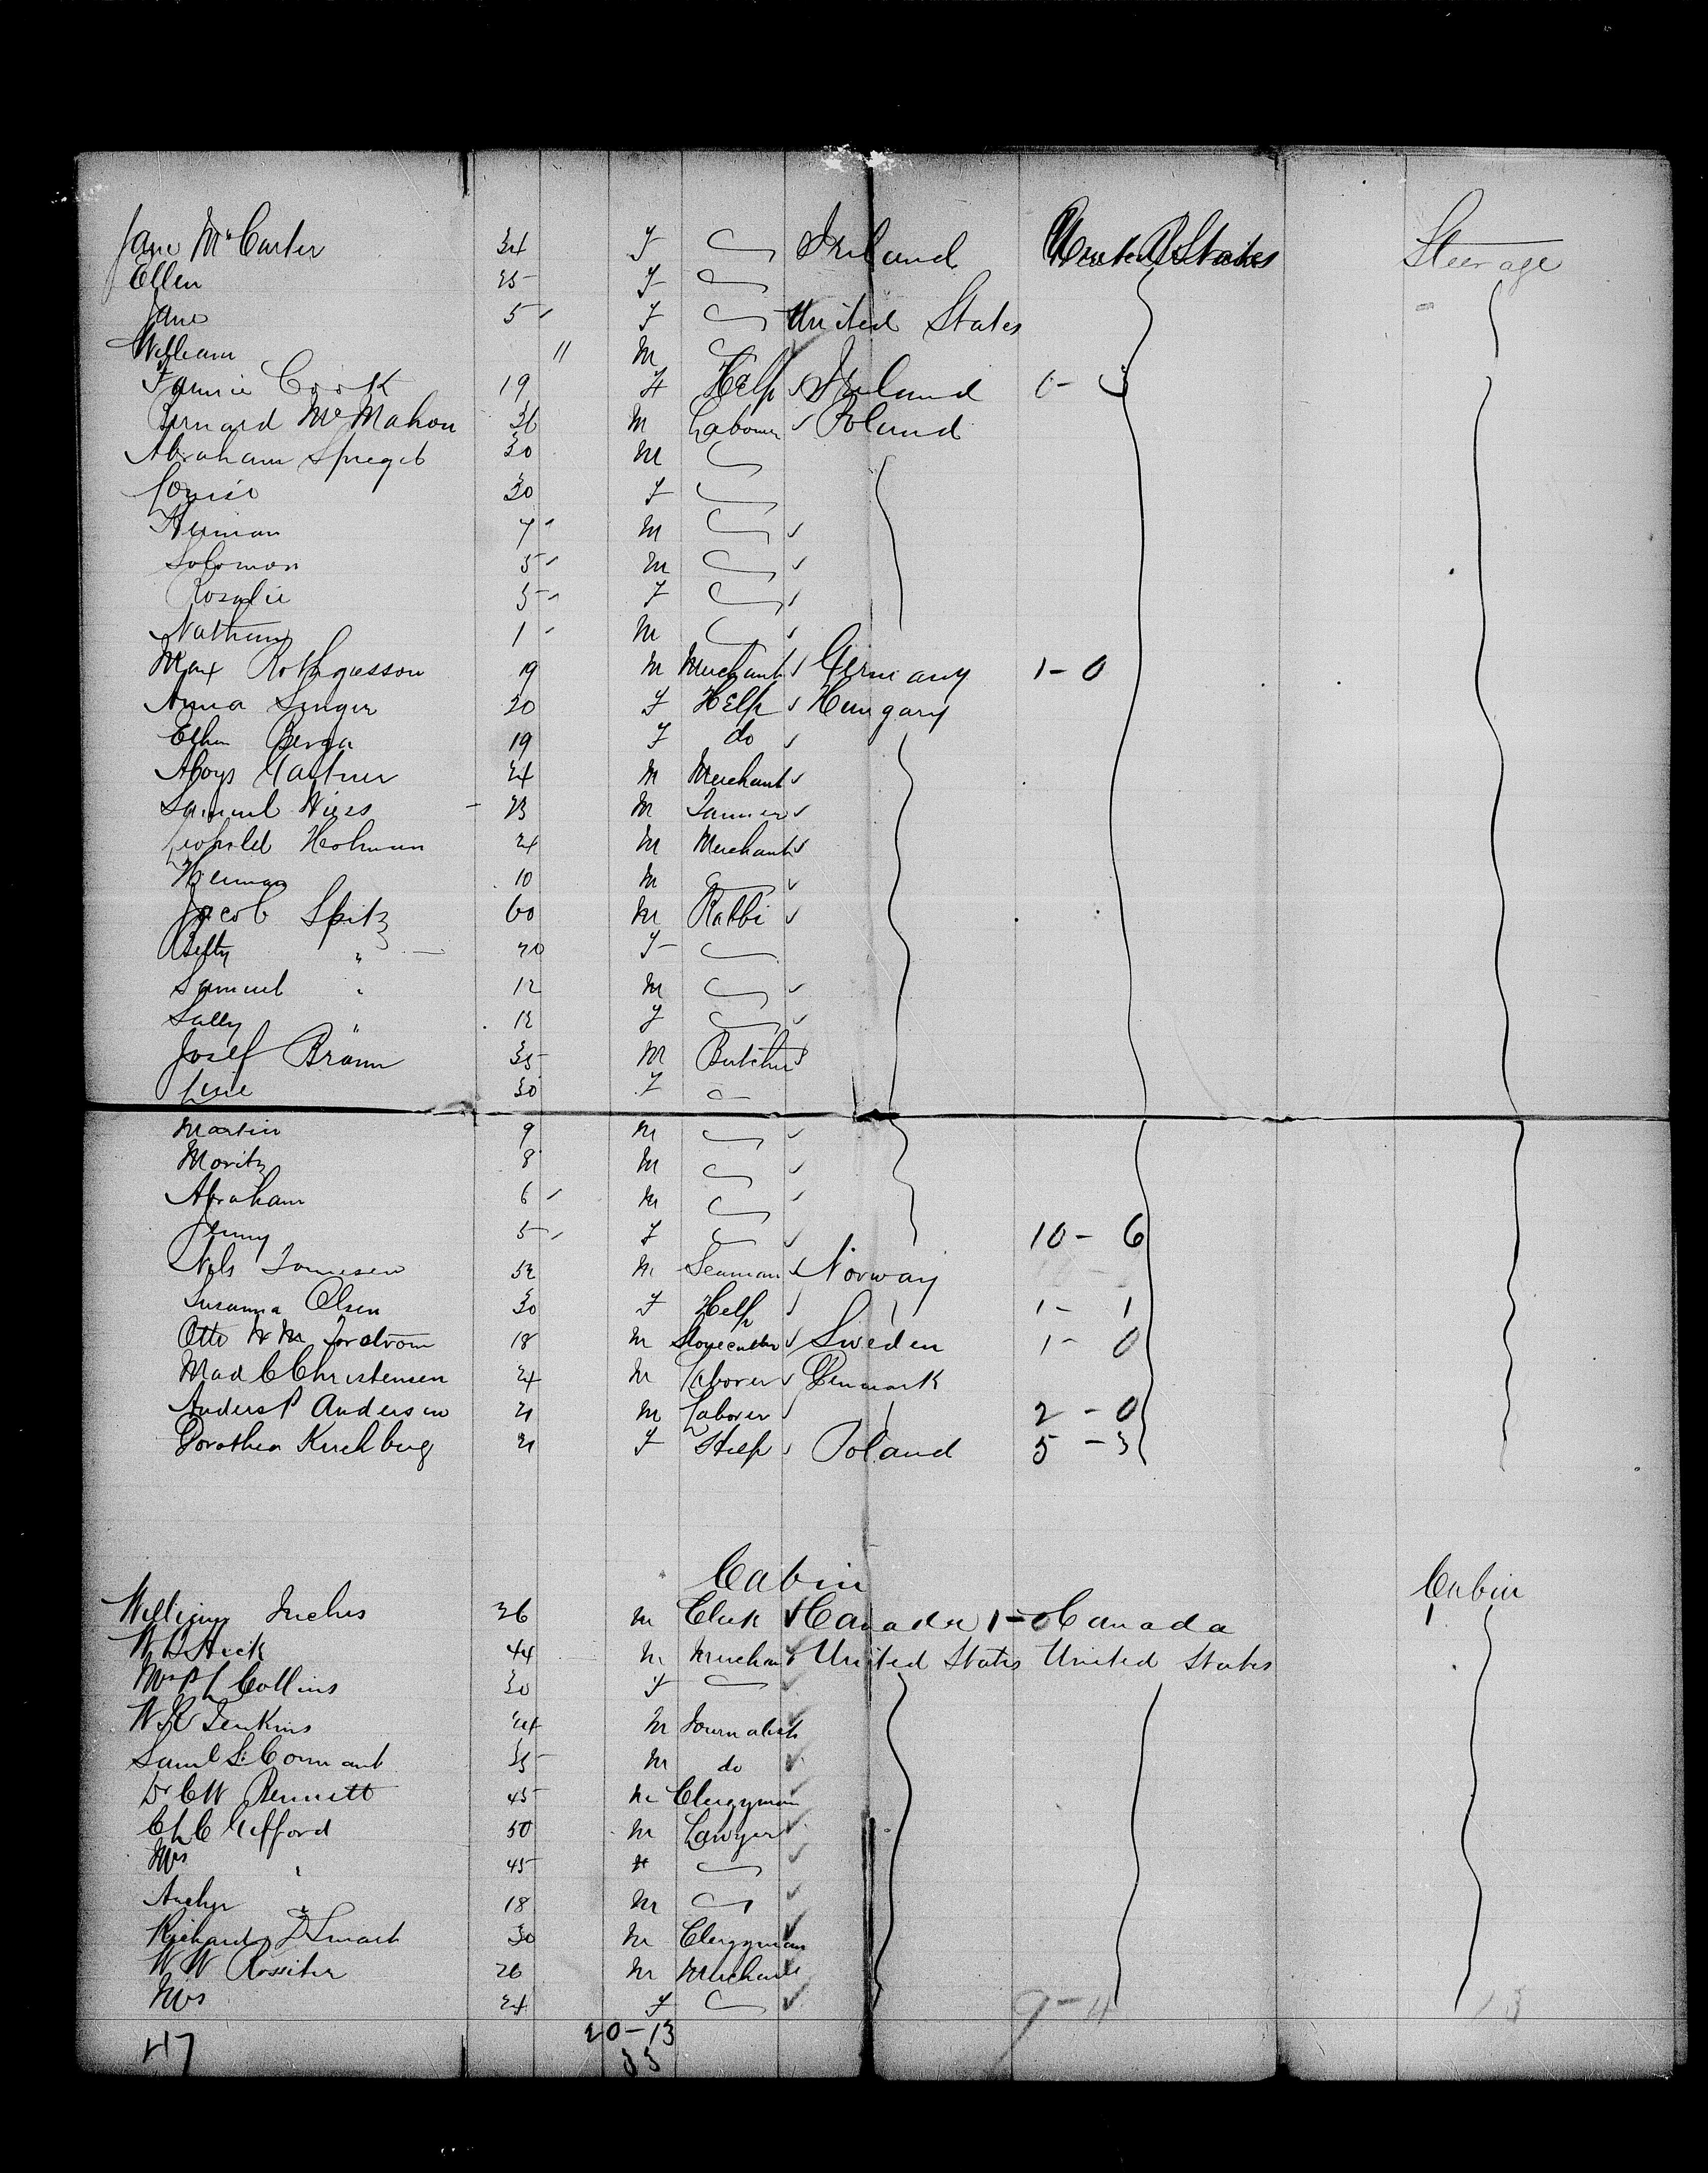 Jane McCarter 34 F Ireland United States Steerage
Ellen 35 F
Jane 5 F United States
William 11 M
Fannie Cook 19 F Help Ireland 0-3
Bernard McMahon 36 M Labourer Poland
Abraham 30 M
Louise 30 F
Herman 7 M
Solomon 5 M
Rosalie 3 F
Nathan 1 M
Max 19 M Merchant Germany 1-0
Anna Singer 20 F Help Hungary
19 F do
24 M Merchant
Samuel 23 M Tanner
Leopold 24 M Merchant
Herman 10 M
Jacob Spitz 60 M Rabbi
Betty " F
Samuel " 12 M
Sally " 12 F
Josef Braun 35 M Butcher
Line 30 F
Martin 9 M
Moritz 8 M
Abraham 6 M
Jenny 5 F 10-6
Nils 52 M Seaman Norway
Susanna Olsen 30 F Help 1-1
Otto 18 M Stonecutter Sweden 1-0
Mad C Christensen 24 M Laborer Denmark
Anders P Andersen 21 M Laborer 2-0
Dorothea Kirchberg 21 F Help Poland 5-3
Cabin Cabin
William Inches 26 M Clerk Canada 1-0 Canada
44 M Merchant United States United States
Collins 30 F
Jenkins 24 M Journalist
Saml S. Conant 35 M do
Dr C W Bennett 45 M Clergyman
Gifford 50 M Lawyer
Mrs " 45 F
" 18 M
Richard D Smart 30 M Clergyman
W W Rossiter 26 M Merchant
Mrs 24 F 9-4 13
47 20-13
33